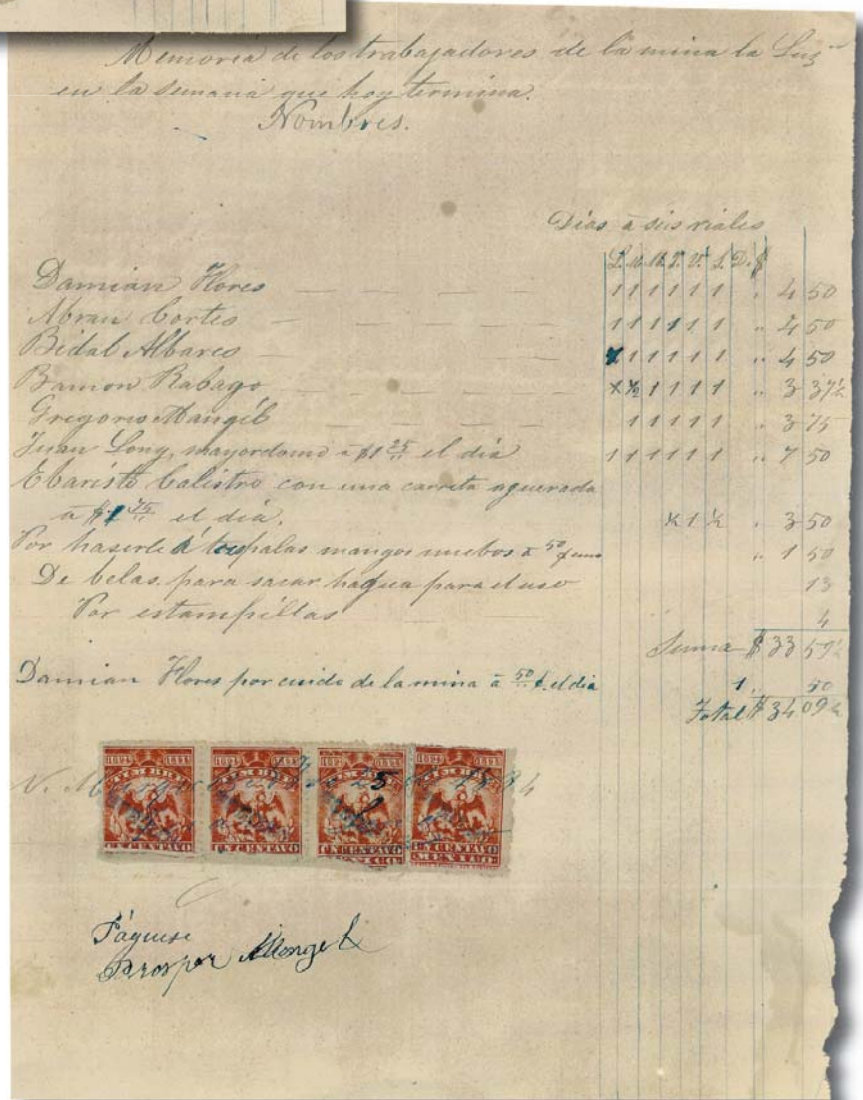 Memoria de los trabajadores de la mina la Luz
en la semana que hoy termina.
Nombres.
Dias a seis riales
L. M. M. J. V. S. D. $
Damian Flores 1 1 1 1 1 1 " 4 50
Abran Cortes 1 1 1 1 1 1 " 4 50
Bidal Albares 1 1 1 1 1 1 " 4 50
Ramon Rabago X ½ 1 1 1 1 " 3 37½
Gregorio Mangil 1 1 1 1 1 " 3 75
Juan Long, mayordomo a $1 25 el dia 1 1 1 1 1 1 " 7 50
Ebaristo Calistro con una carreta aguerada
a $1 75 el dia. ½ 1 ½ " 3 50
Por haserle á tres palas mangos nuebos a 50 " 1 50
De belas para sacar hagua para el uso 13
Por estampillas 4
Suma $ 33 59½
Damian Flores por cuido de la mina a 50 ¢. el dia 1 " 50
Total $ 34 09½
1894 1894 1894 1894
25 94
UN CENTAVO UN CENTAVO UN CENTAVO UN CENTAVO
MEXICO MEXICO
Páguese
Prosper Mengel